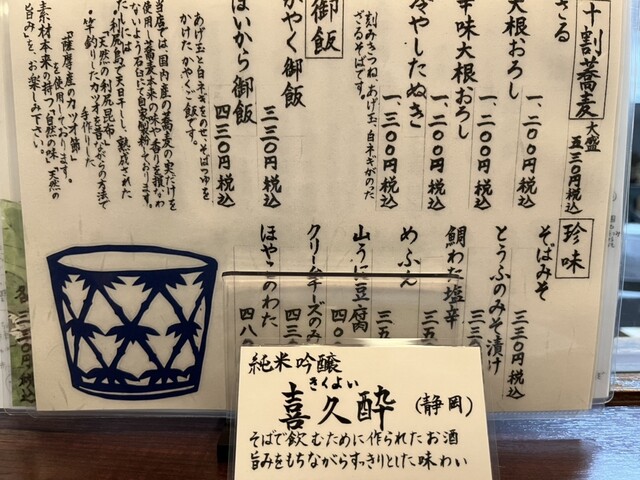 十割蕎麦 大盛
五三〇円税込
ざる
大根おろし
一、二〇〇円税込
辛味大根おろし
一、二〇〇円税込
冷やしたぬき
一、二〇〇円税込
刻みきつね、あげ玉、白ネギがのった
ざるそばです。
御飯
かやく御飯
三三〇円税込
はいから御飯
四三〇円税込
あげ玉と白ネギをのせ、そばつゆを
かけた かやくご飯です。
当店では、国内産の蕎麦の実だけを
使用し、蕎麦本来の味や香りを損なわ
ないよう石臼にて自家製粉しております。
利尻島で天日干しし、熟成された
「天然の利尻昆布」
・竿釣りしたカツオを昔ながらの方法で
手作りした
「薩摩産のカツオ節」
を使用しております。
素材本来の持つ、自然の味、天然の
旨みを、お楽しみ下さい。
珍味
そばみそ
三三〇円税込
とうふのみそ漬け
三三〇
鯛わた塩辛
三五
めふん
三五
山うに豆腐
四〇〇
クリームチーズのみ
四三〇
ほやこのわた
四八〇
各三三〇円税込
純米吟醸
きくよい
喜久酔 (静岡)
そばで飲むために作られたお酒
旨みをもちながらすっきりとした味わい